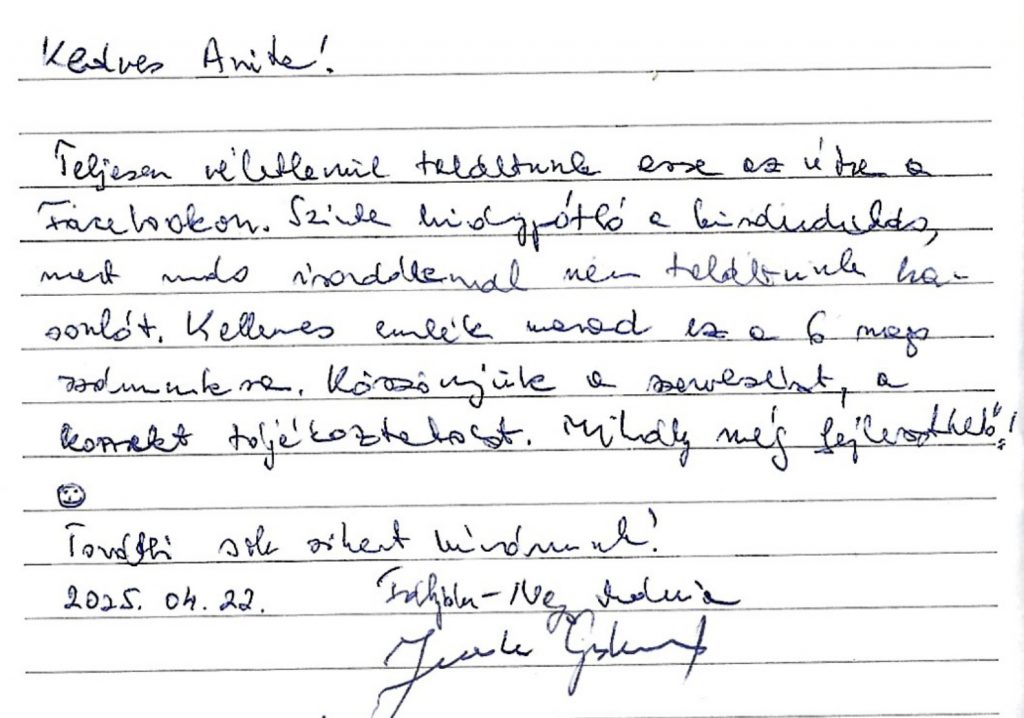 Kedves Anita!
Teljesen véletlenül találtunk erre az útra a
Facebookon. Szinte hiánypótló a kirándulás,
mert más irodáknál nem találtunk ha-
sonlót. Kellemes emlék marad ez a 6 nap
számunkra. Köszönjük a szervezést, a
korrekt tájékoztatást. Mihály még fejleszthető!
☺
További sok sikert kívánunk!
2025. 04. 22.